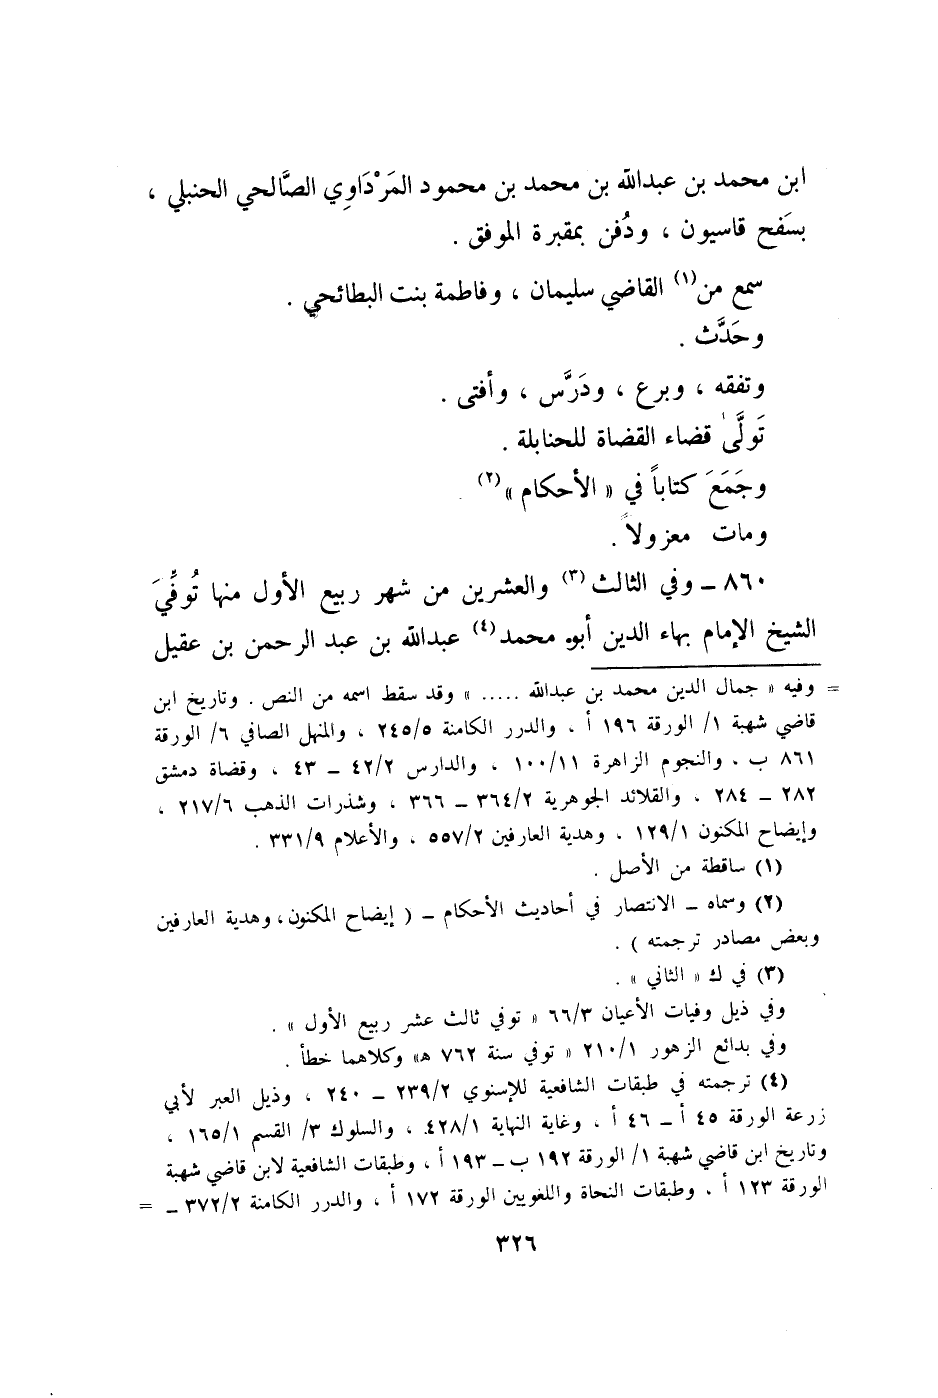 ابن محمد بن عبدالله بن محمد بن محمود المَرْدَاوِي الصَّالحي الحنبلي ،
بسَفح قاسيون ، ودُفن بمقبرة الموفق .
سمع من(١) القاضي سليمان ، وفاطمة بنت البطائحي .
وحَدَّث .
وتفقه ، وبرع ، ودَرَّس ، وأفتى .
تَولَّى قضاء القضاة للحنابلة .
وجَمَعَ كتاباً في « الأحكام »(٢) .
ومات معزولاً .
٨٦٠ ـ وفي الثالث (٣) والعشرين من شهر ربيع الأول منها تُوفِّيَ
الشيخ الإمام بهاء الدين أبو محمد(٤) عبدالله بن عبد الرحمن بن عقيل
= وفيه « جمال الدين محمد بن عبدالله ..... » وقد سقط اسمه من النص . وتاريخ ابن
قاضي شهبة ١/ الورقة ١٩٦ أ ، والدرر الكامنة ٢٤٥/٥ ، والمنهل الصافي ٦/ الورقة
٨٦١ ب ، والنجوم الزاهرة ١٠٠/١١ ، والدارس ٤٢/٢ ـ ٤٣ ، وقضاة دمشق
٢٨٢ ـ ٢٨٤ ، والقلائد الجوهرية ٣٦٤/٢ ـ ٣٦٦ ، وشذرات الذهب ٢١٧/٦ ،
وإيضاح المكنون ١٢٩/١ ، وهدية العارفين ٥٥٧/٢ ، والأعلام ٣٣١/٩ .
(١) ساقطة من الأصل .
(٢) وسماه ـ الانتصار في أحاديث الأحكام ـ ( إيضاح المكنون، وهدية العارفين
وبعض مصادر ترجمته ) .
(٣) في ك « الثاني » .
وفي ذيل وفيات الأعيان ٦٦/٣ « توفي ثالث عشر ربيع الأول » .
وفي بدائع الزهور ٢١٠/١ « توفي سنة ٧٦٢ ه» وكلاهما خطأ .
(٤) ترجمته في طبقات الشافعية للإسنوي ٢٣٩/٢ ـ ٢٤٠ ، وذيل العبر لأبي
زرعة الورقة ٤٥ أ ـ ٤٦ أ ، وغاية النهاية ٤٢٨/١ ، والسلوك ٣/ القسم ١٦٥/١ ،
وتاريخ ابن قاضي شهبة ١/ الورقة ١٩٢ ب ـ ١٩٣ أ ، وطبقات الشافعية لابن قاضي شهبة
الورقة ١٢٣ أ ، وطبقات النحاة واللغويين الورقة ١٧٢ أ ، والدرر الكامنة ٣٧٢/٢ ـ =
٣٢٦